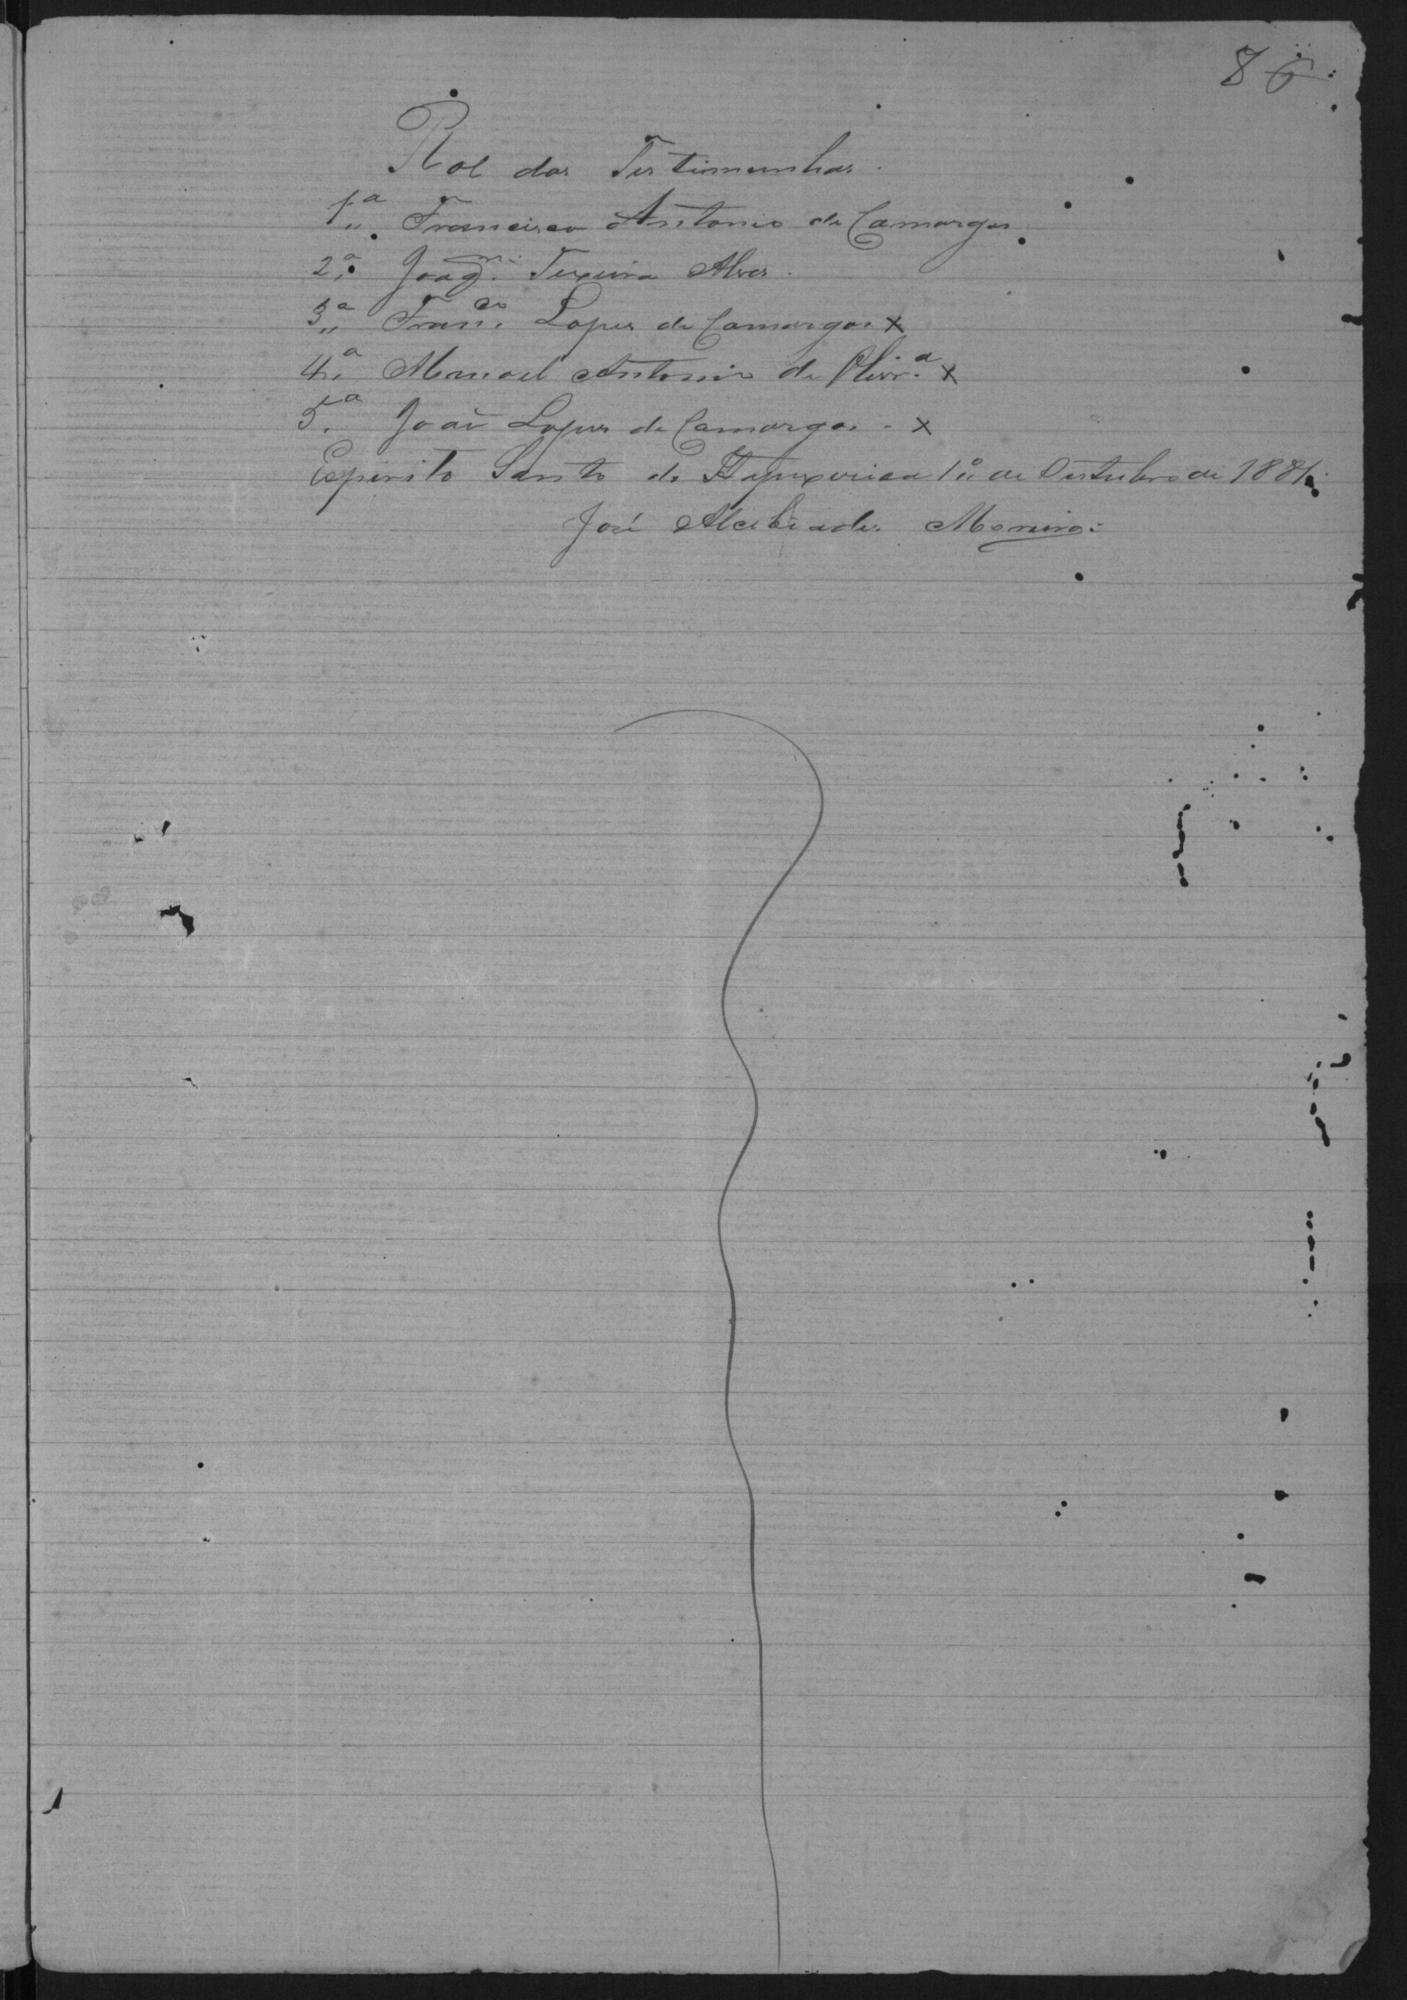 86
Rol das Testimunhas.
1.ª Francisco Antonio de Camargos.
2.ª Joaqm. Texeira Alves.
3.ª Franco. Lopes de Camargos x
4.ª Manoel Antonio de Olivr.ª x
5.ª João Lopes de Camargos. x
Espirito Santo de Itapixerica 1.º de Outubro de 1881.
José Alcebiades Moreira.